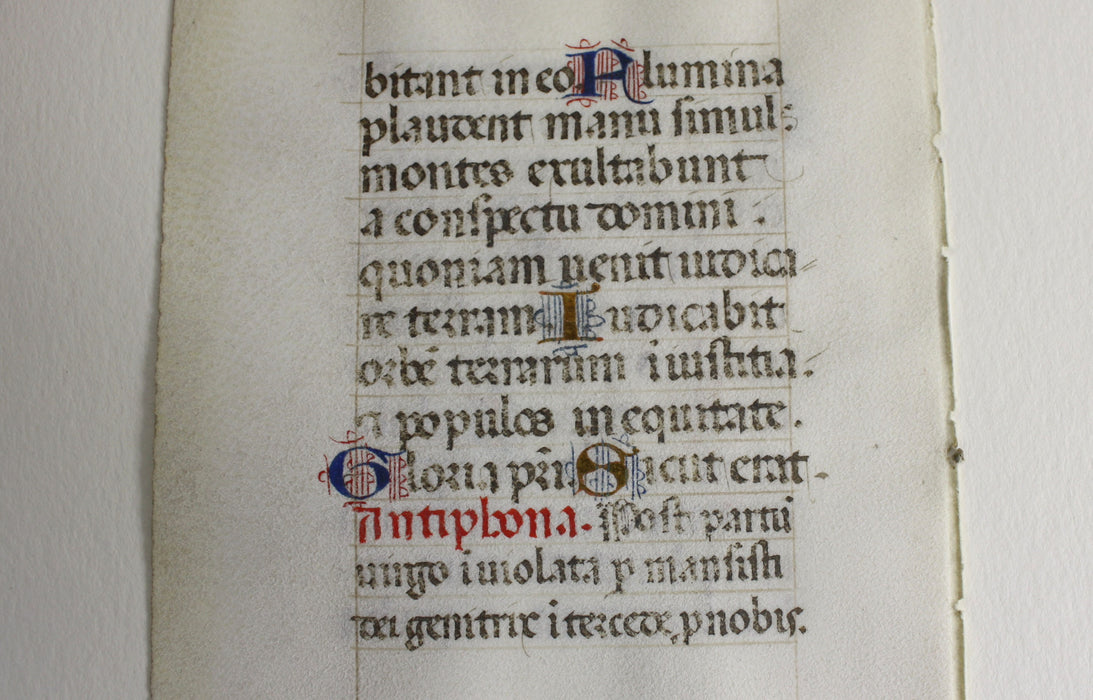 bitant in eo Flumina
plaudent manu simul:
montes exultabunt
a conspectu domini .
quoniam uenit iudica
re terram Iudicabit
orbē terrarum ī iusticia .
& populos in equitate .
Gloria pr̄i Sicut erat .
Antiphona. Post partū
uirgo īuiolata ꝑ mansisti
dei genitrix ītercede ꝓ nobis.